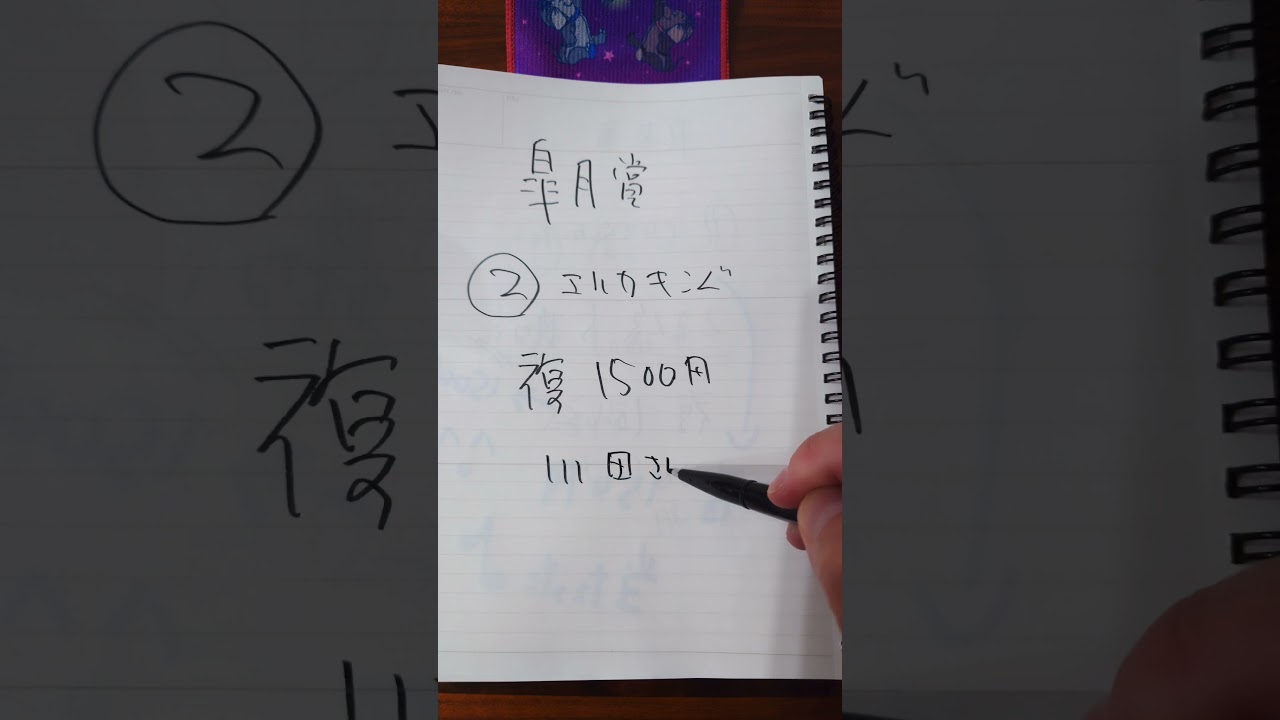 皐月賞
② エルカギング
複 1500円
川田さん